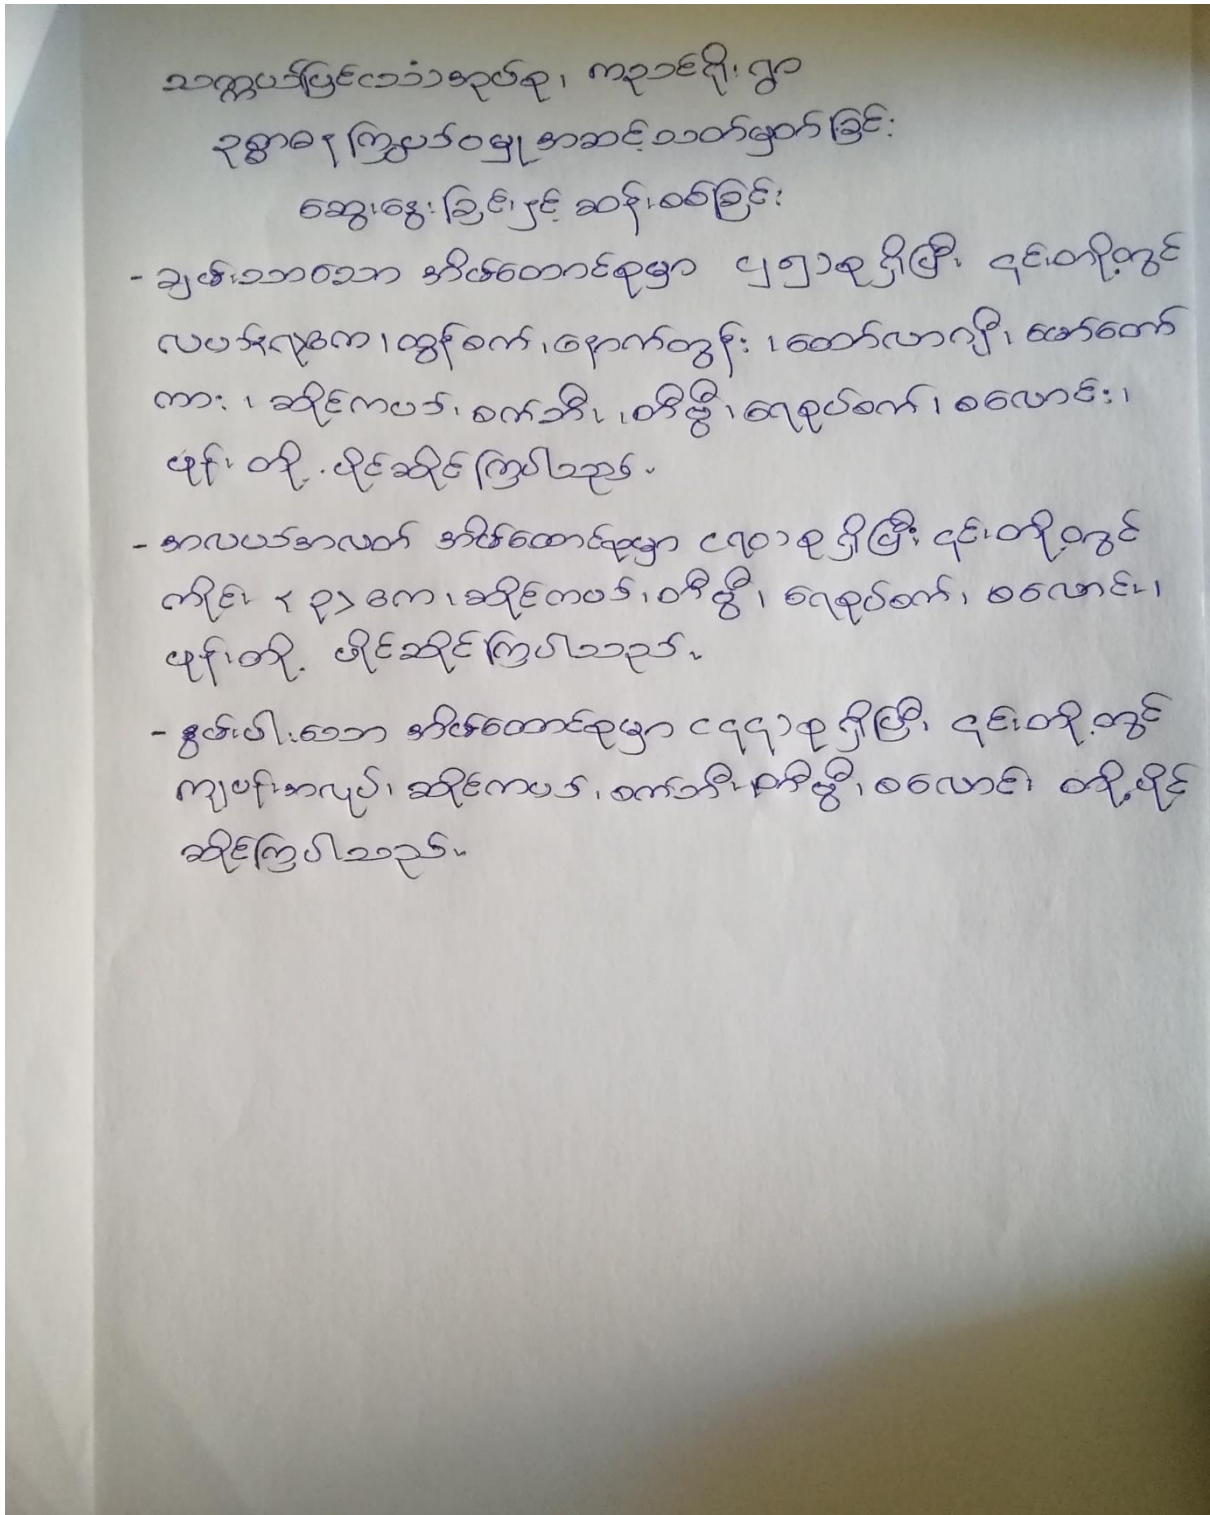 သက္ကယ်ပြင်ဘံသာအုပ်စု၊ ကညင်ငိုးရွာ
ဥစ္စာဓန ကြွယ်ဝမှု အဆင့်သတ်မှတ်ခြင်း
ဆွေးနွေးခြင်းနှင့် ဆန်းစစ်ခြင်း
- ချမ်းသာသော အိမ်ထောင်စုမှာ ၎၅၁စု ရှိပြီး ၎င်းတို့တွင်
လယ် ၊ ထွန်စက် ၊ နောက်တွန်း ၊ တော်လာဂျီ ၊ မော်တော်
ကား ၊ ဆိုင်ကယ် ၊ စက်ဘီး ၊ တီဗွီ ၊ ရေစုပ်စက် ၊ စလောင်း ၊
ဖုန်း တို့ ပိုင်ဆိုင်ကြပါသည်။
- အလယ်အလတ် အိမ်ထောင်စုမှာ ၎င်းတို့တွင်
ကိုင်း < ၃ > ဧက ၊ ဆိုင်ကယ် ၊ တီဗွီ ၊ ရေစုပ်စက် ၊ စလောင်း ၊
ဖုန်းတို့ ပိုင်ဆိုင်ကြပါသည်။
- နွမ်းပါးသော အိမ်ထောင်စုမှာ စု ရှိပြီး ၎င်းတို့တွင်
ကျပန်းအလုပ် ၊ ဆိုင်ကယ် ၊ စက်ဘီး ၊ တီဗွီ ၊ စလောင်း တို့ ပိုင်
ဆိုင်ကြပါသည်။